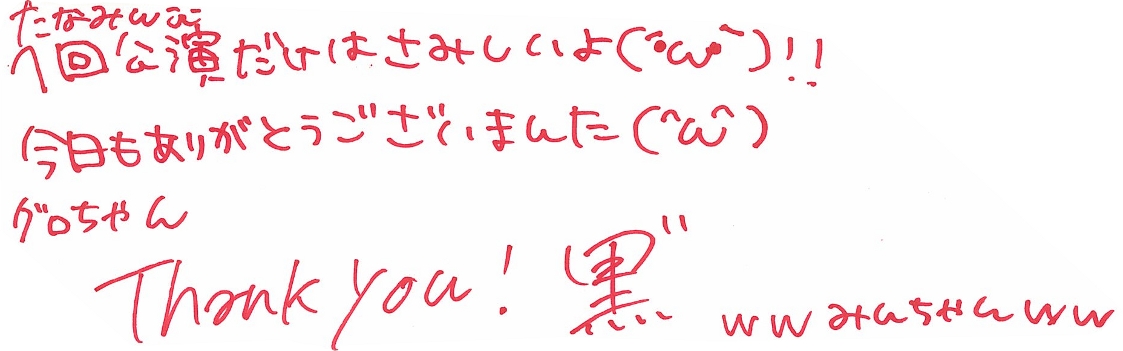 たなみん
1回公演だけはさみしいよ(´•ω•`)!!
今日もありがとうございました(^ω^)
グロちゃん
Thank you! 黒゛ wwみんちゃんww